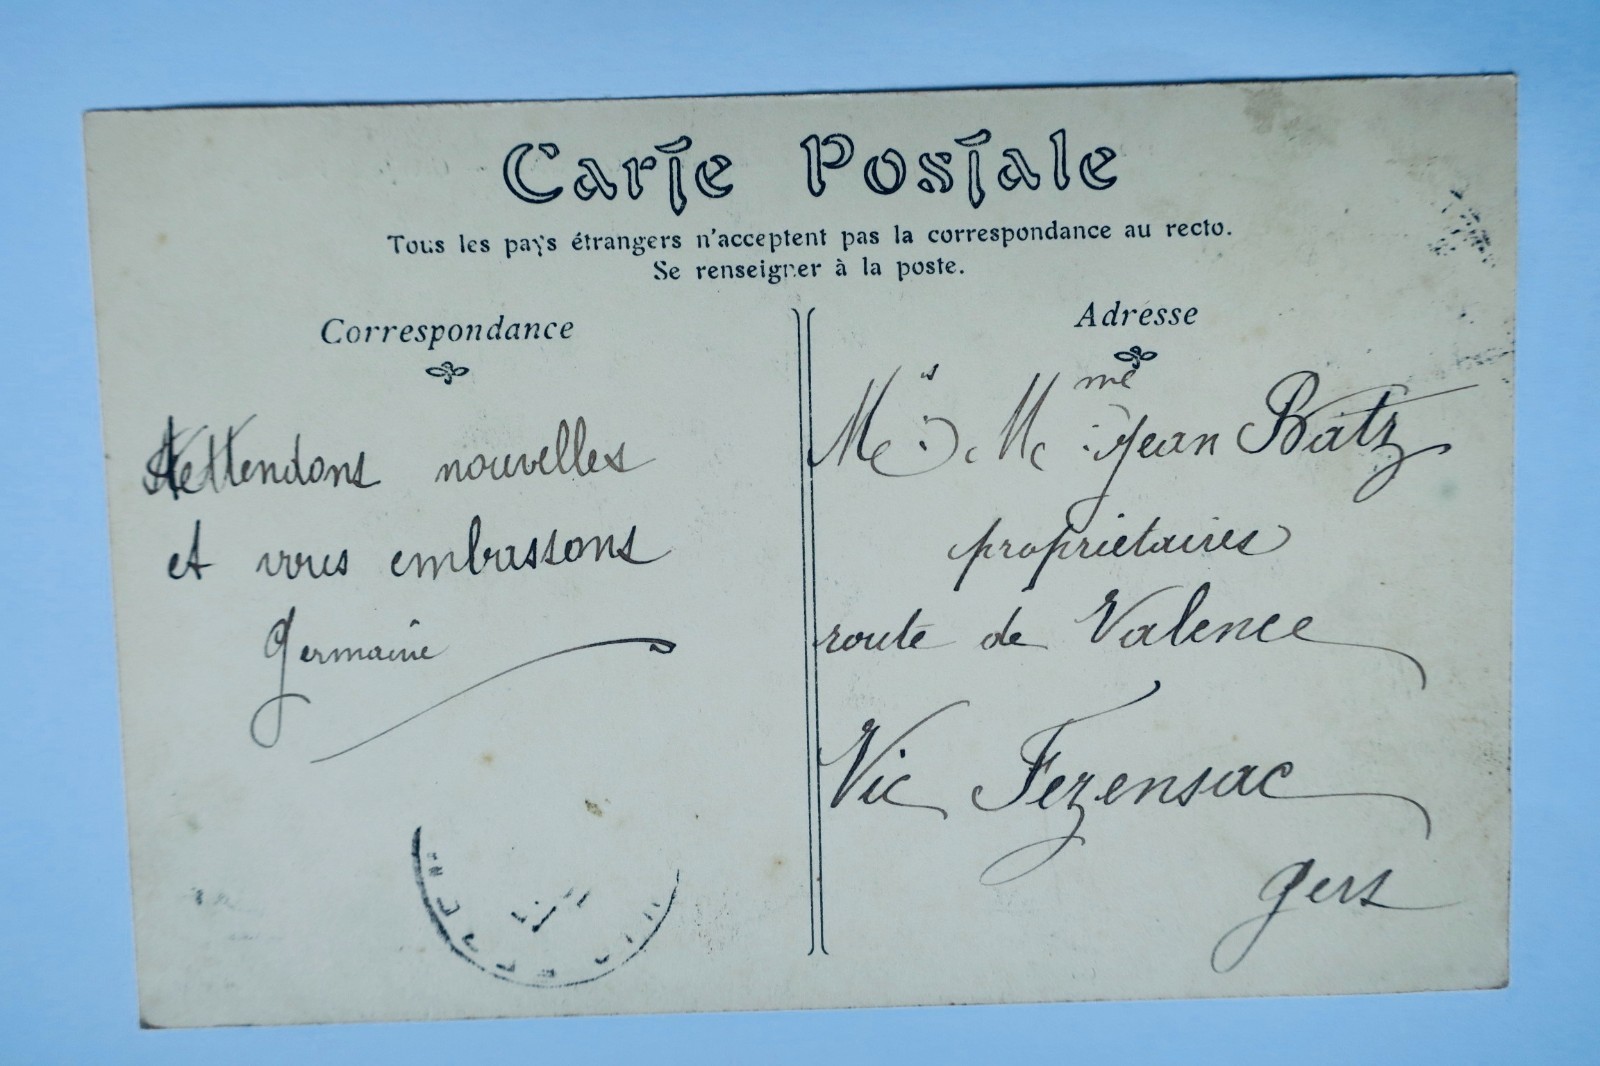 Carte Postale
Tous les pays étrangers n'acceptent pas la correspondance au recto.
Se renseigner à la poste.
Correspondance
Attendons nouvelles
et vous embrassons
Germaine
Adresse
Mme Jean Batz
propriétaires
route de Valence
Vic Fezensac
Gers